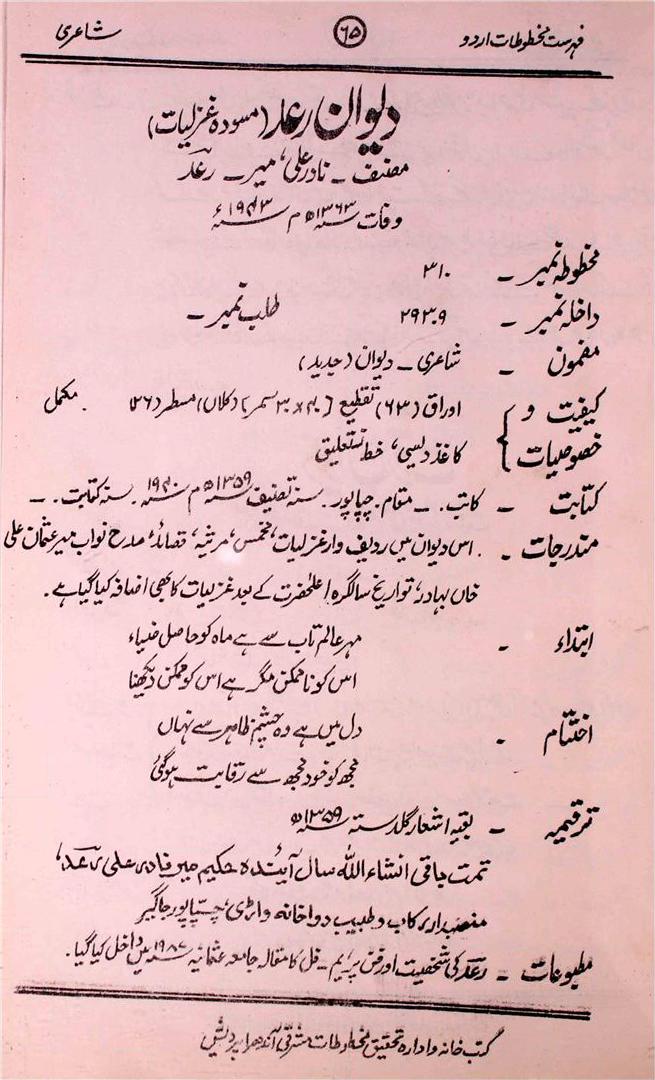 فہرست مخطوطات اردو ۶۵ شاعری
دیوان رعد (مسودہ غزلیات)
مصنف ۔ نادر علی، میر ۔ رعد
وفات ۱۳۶۳ھ م ۱۹۴۳ء
مخطوطہ نمبر ۔ ۳۱۰
داخلہ نمبر ۔ ۲۹۳۰۹ طلب نمبر ۔
مضمون ۔ شاعری ۔ دیوان (جدید)
کیفیت و اوراق (۶۳) تقطیع [۴۰ x ۳۰ سمر] (کلاں) مسطر (۲۶) مکمل
خصوصیات کاغذ دیسی، خط نستعلیق
کتابت ۔ کاتب ۔ مقام ۔ چپاپور۔ سنہ تصنیف ۱۳۵۹ھ م ۱۹۴۰ء۔ سنہ کتابت ۔ ۔
مندرجات ۔ اس دیوان میں ردیف وار غزلیات، مخمس، مرثیہ، قصائد، مدح نواب میر عثمان علی
خاں بہادر، تواریخ سالگرہ اعلحضرت کے بعد غزلیات کا بھی اضافہ کیا گیا ہے۔
ابتداء ۔ مہر عالم تاب سے ہے ماہ کو حاصل ضیاء
اس کو ناممکن مگر ہے اس کو ممکن دیکھنا
اختتام ۔ دل میں ہے وہ چشم ظاہر سے نہاں
مجھ کو خود مجھ سے رقابت ہوگئی
ترقیمہ ۔ بقیہ اشعار گلدستہ ۱۳۵۹ھ
تمت باقی انشاء اللہ سال آئندہ حکیم میر نادر علی رعد،
منصبدار رکاب و طبیب دواخانہ واڑی، چپاپور جاگیر
مطبوعات ۔ رعد کی شخصیت اور فن پر ایم۔فل کا مقالہ جامعہ عثمانیہ ۱۹۸۷ء میں داخل کیا گیا۔
کتب خانہ و ادارہ تحقیق مخطوطات مشرقی آندھرا پردیش